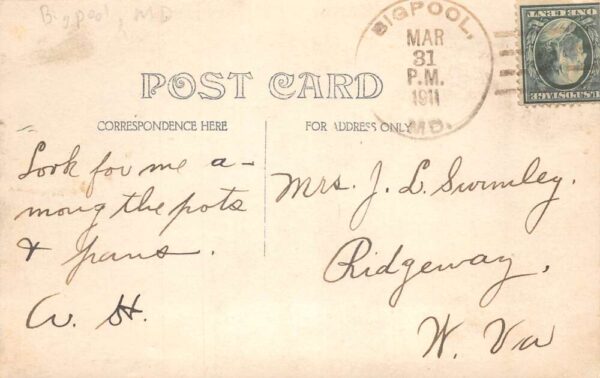 Bigpool, MD
BIGPOOL,
MAR
31
P.M.
1911
MD.
U.S. POSTAGE
ONE CENT
POST CARD
CORRESPONDENCE HERE
FOR ADDRESS ONLY
Look for me a-
mong the pots
& pans.
W. H.
Mrs. J. L. Swimley.
Ridgeway,
W. Va